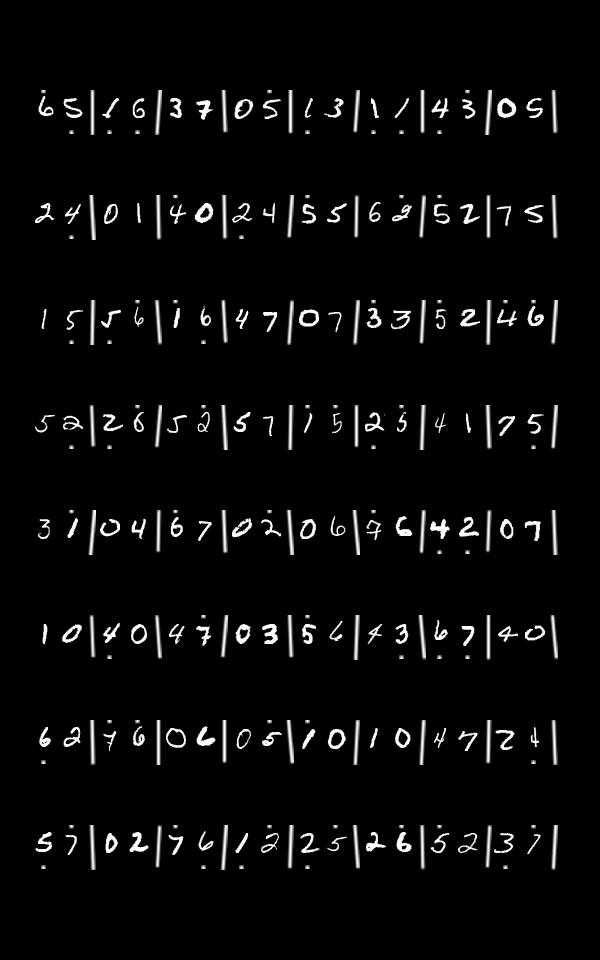 6̇ 5̣ | 1̣ 6̣ | 3 7 | 0 5̇ | 1̣ 3 | 1̣ 1̣ | 4̣ 3̇ | 0 5 |
2 4̣ | 0 1 | 4̇ 0 | 2̣ 4 | 5̇ 5 | 6 2̇ | 5̇ 2 | 7 5 |
1 5̣ | 5̣ 6̇ | 1̇ 6̣ | 4 7 | 0 7 | 3̇ 3 | 5̇ 2 | 4̇ 6̇ |
5 2̇ | 2̣ 6̇ | 5 2̇ | 5 7 | 1̇ 5̇ | 2̣ 5̇ | 4 1 | 7 5̣ |
3 1̇ | 0 4 | 6̇ 7 | 0 2̇ | 0 6 | 7̇ 6 | 4̣ 2̣ | 0 7 |
1 0 | 4̣ 0 | 4 7̇ | 0 3 | 5̇ 6 | 4 3̣ | 6̣ 7̣ | 4 0 |
6̣ 2 | 7̇ 6̇ | 0 6 | 0 5̇ | 1̇ 0 | 1 0 | 4 7 | 2 4̣ |
5̣ 7̇ | 0 2 | 7̇ 6̣ | 1̣ 2̇ | 2̣ 5̇ | 2 6̇ | 5̇ 2 | 3̣ 7̇ |